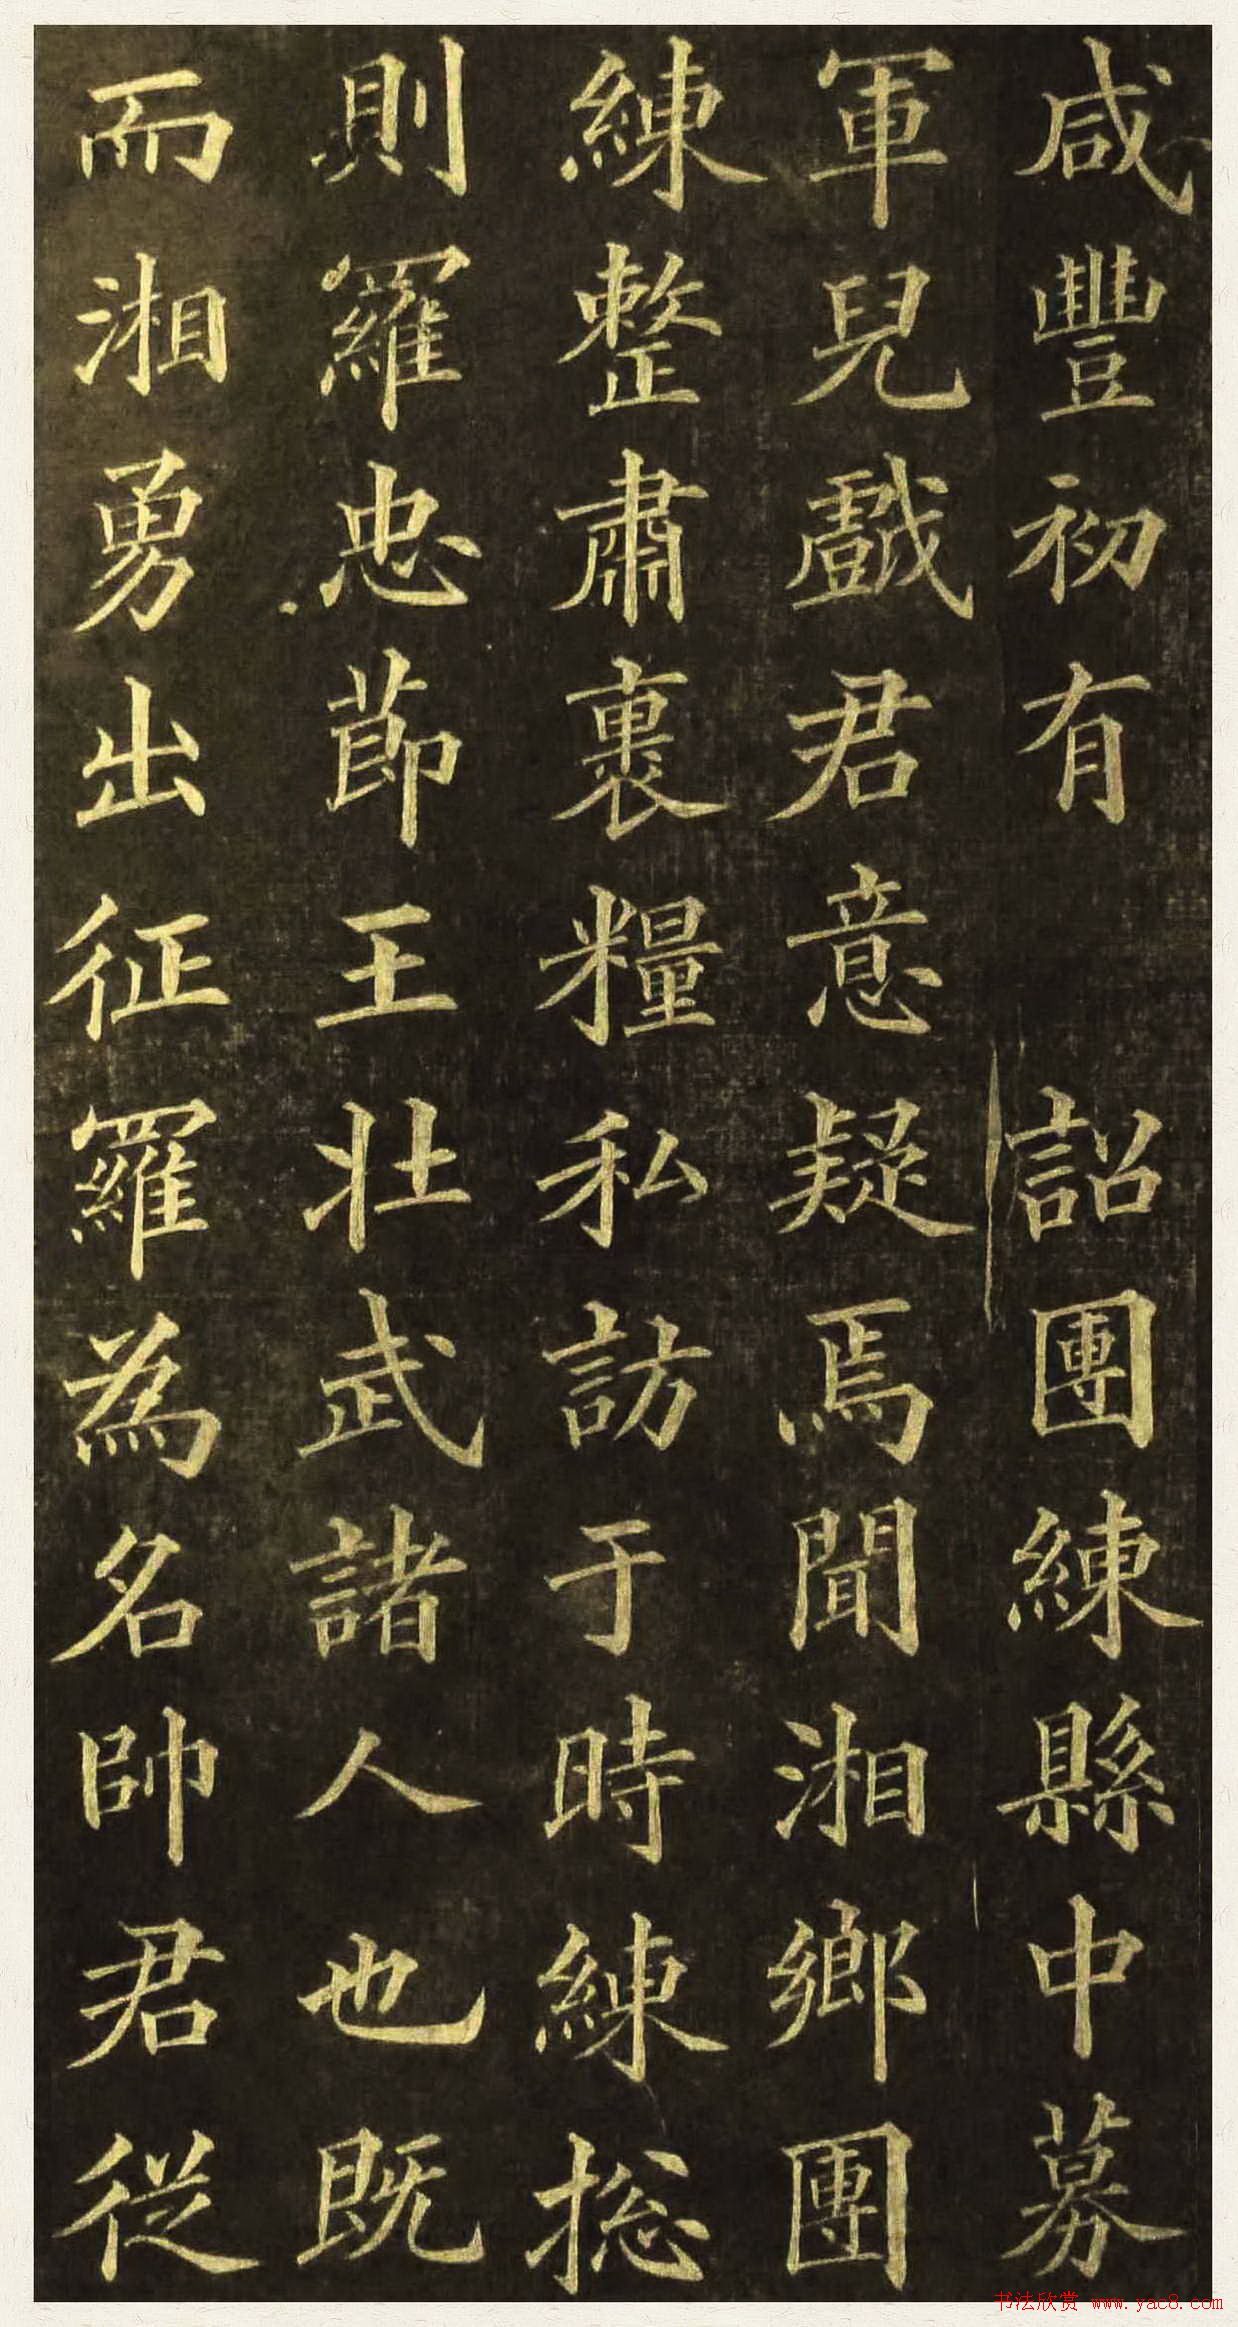 咸豐初有 詔團練縣中募
軍兒戲君意疑焉聞湘鄉團
練整肅裹糧私訪于時練捴
則羅忠節王壯武諸人也既
而湘勇出征羅為名帥君從
书法欣赏 www.yac8.com